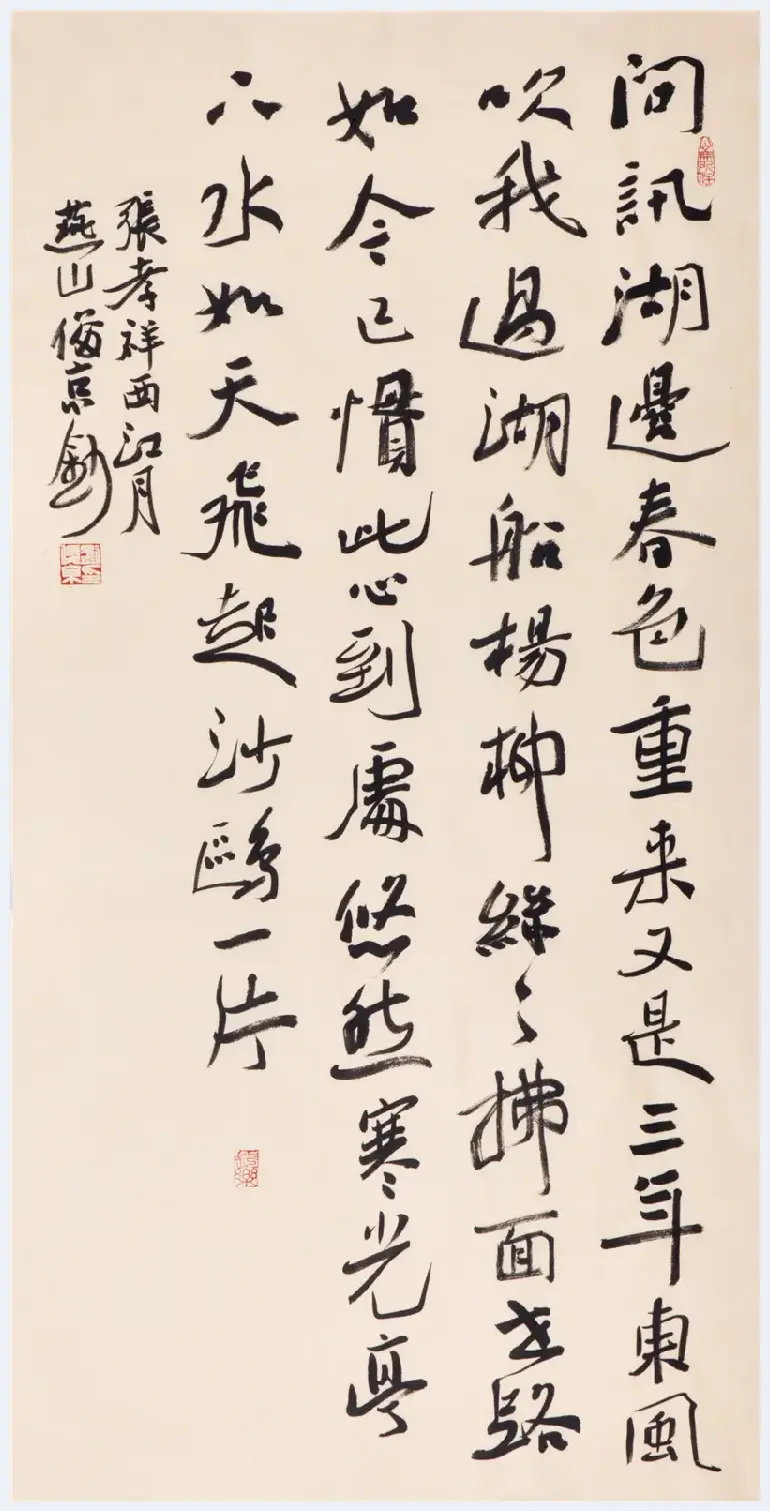 問訊湖邊春色重来又是三年東風
吹我過湖船楊柳絲々拂面世路
如今已慣此心到處悠然寒光亭
下水如天飛起沙鷗一片
張孝祥西江月
燕山俻京鈔